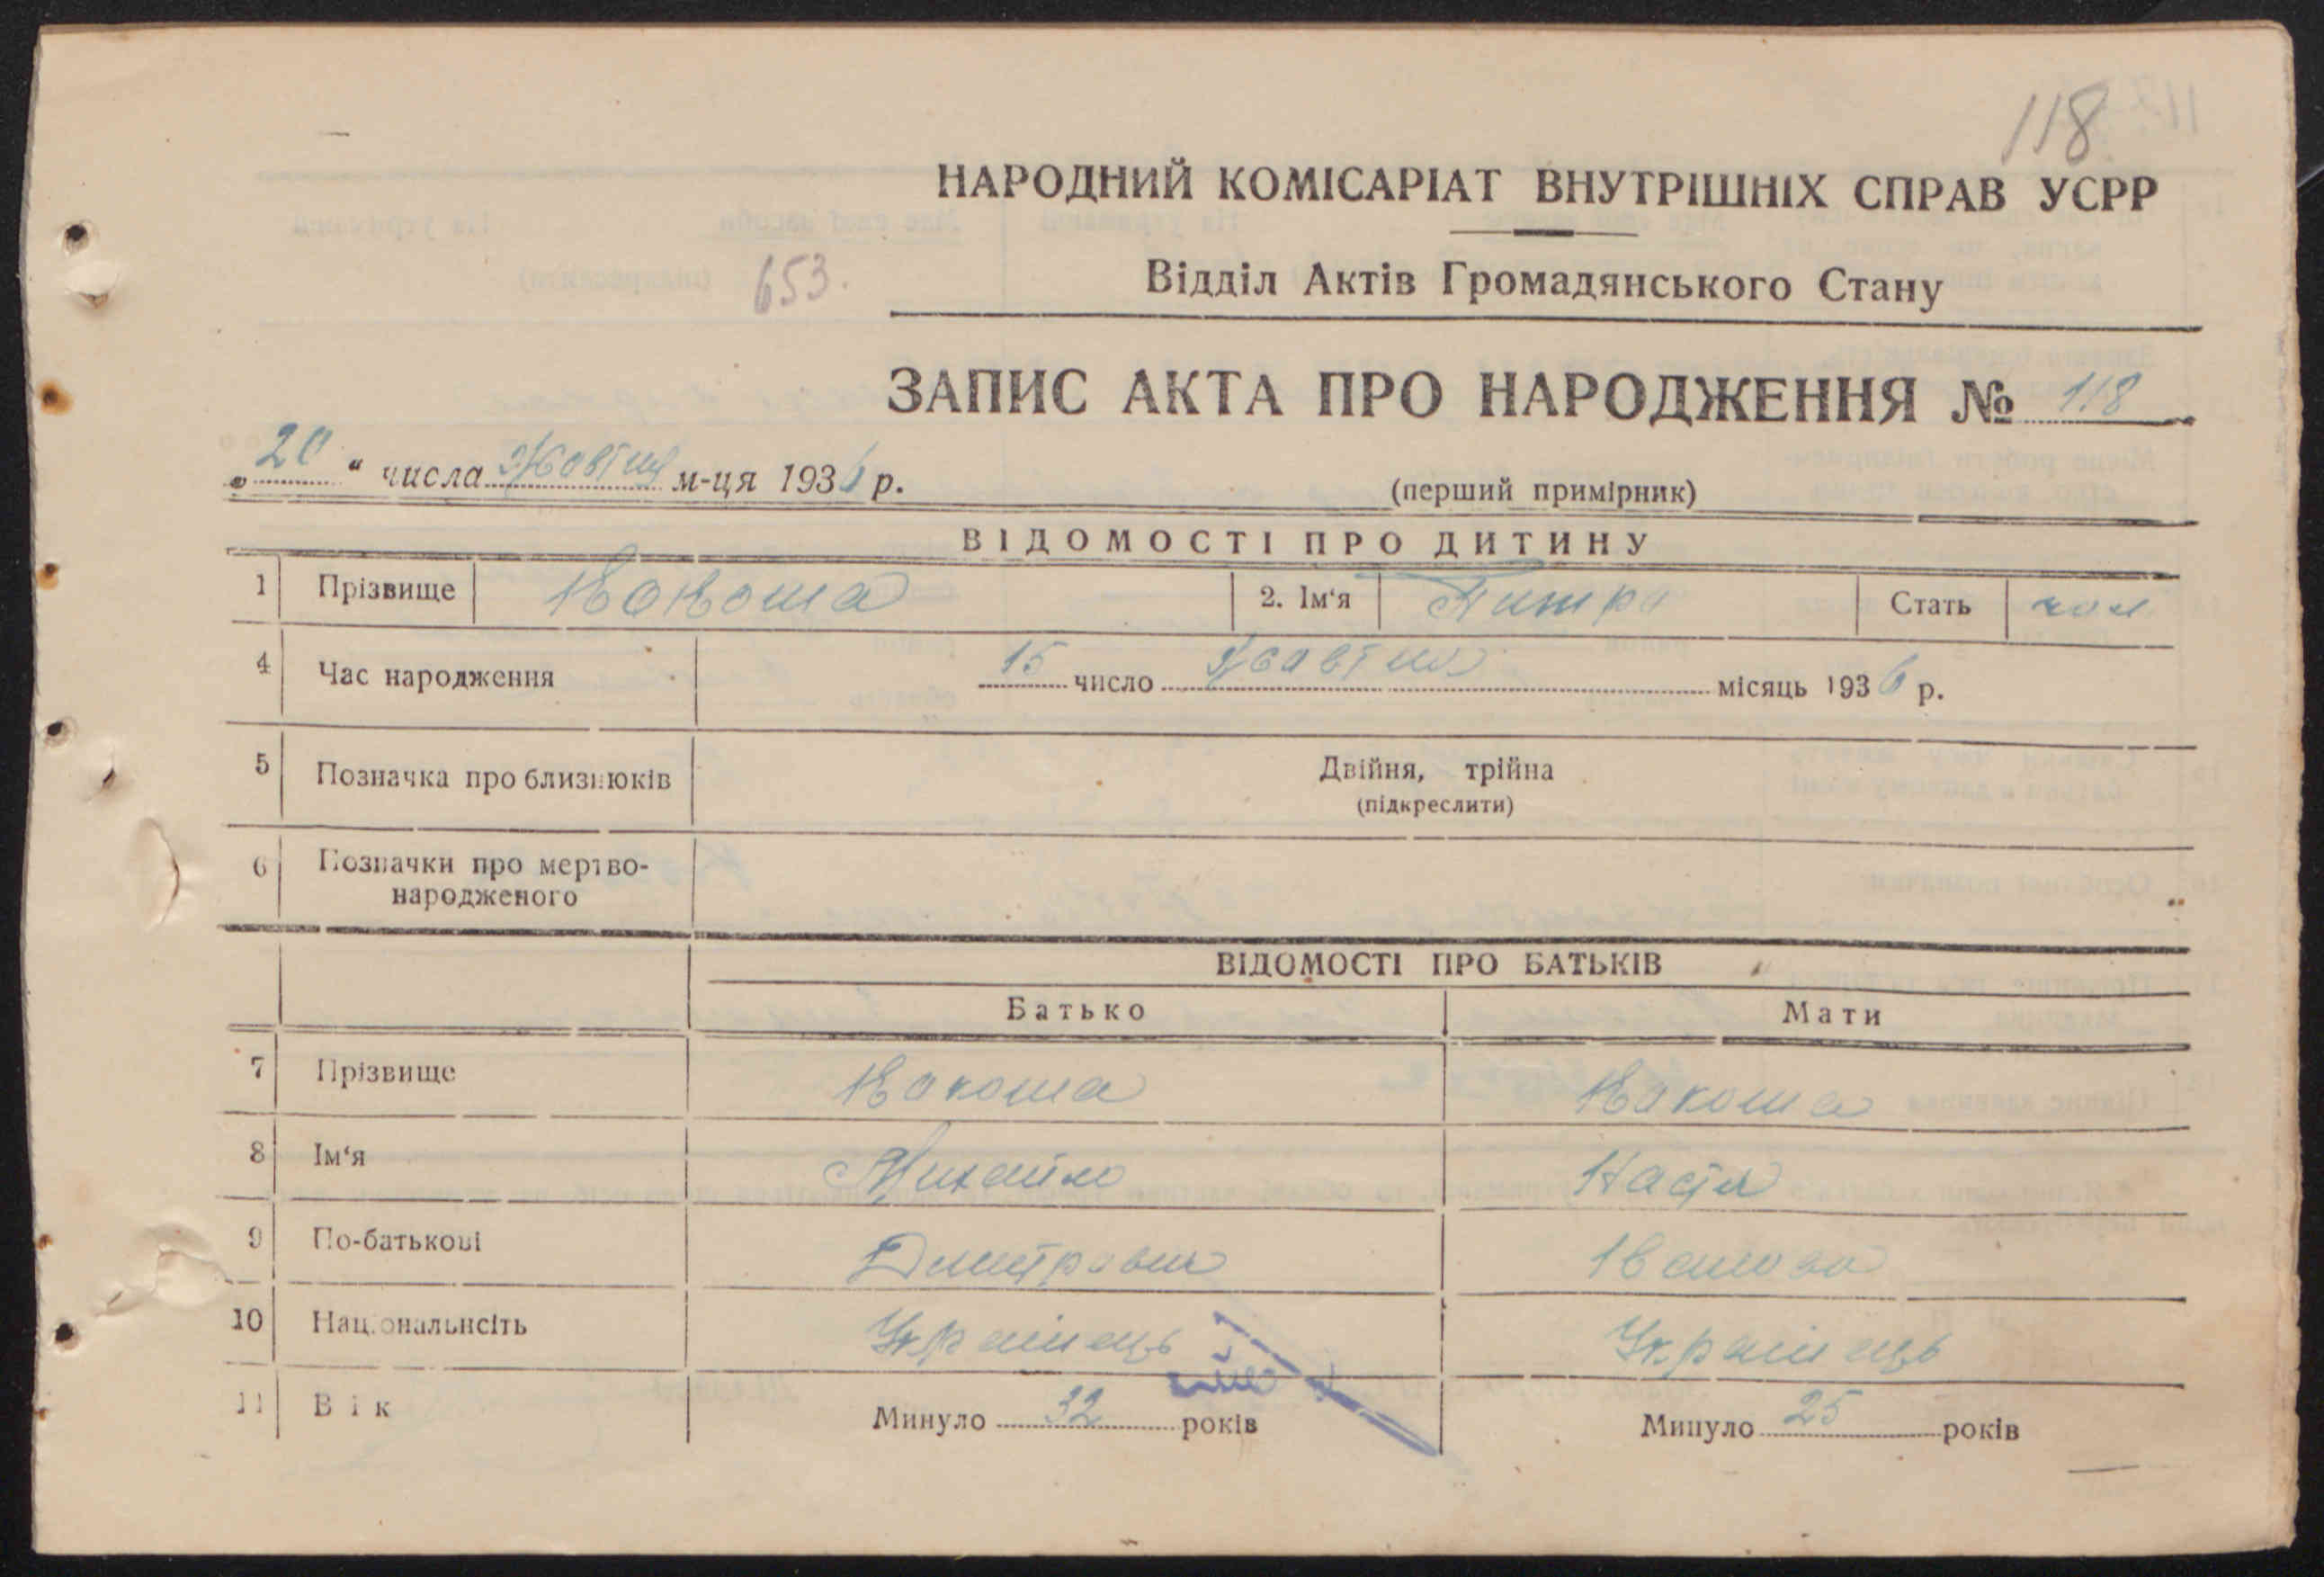 118
НАРОДНИЙ КОМІСАРІАТ ВНУТРІШНІХ СПРАВ УСРР
653.
Відділ Актів Громадянського Стану
ЗАПИС АКТА ПРО НАРОДЖЕННЯ № 118
„ 20 “ числа Жовтня м-ця 1936 р.
(перший примірник)
ВІДОМОСТІ ПРО ДИТИНУ
1 Прізвище Кокоша 2. Ім‘я Питро Стать чол
4 Час народження 15 число Жовтня місяць 1936 р.
5 Позначка про близнюків Двійня, трійна
(підкреслити)
6 Позначки про мертво-
народженого
ВІДОМОСТІ ПРО БАТЬКІВ
Батько Мати
7 Прізвище Кокоша Кокоша
8 Ім‘я Михайло Настя
9 По-батькові Дмитрович Іванова
10 Національнсіть Українець Українець
11 Вік Минуло 32 років Минуло 25 років